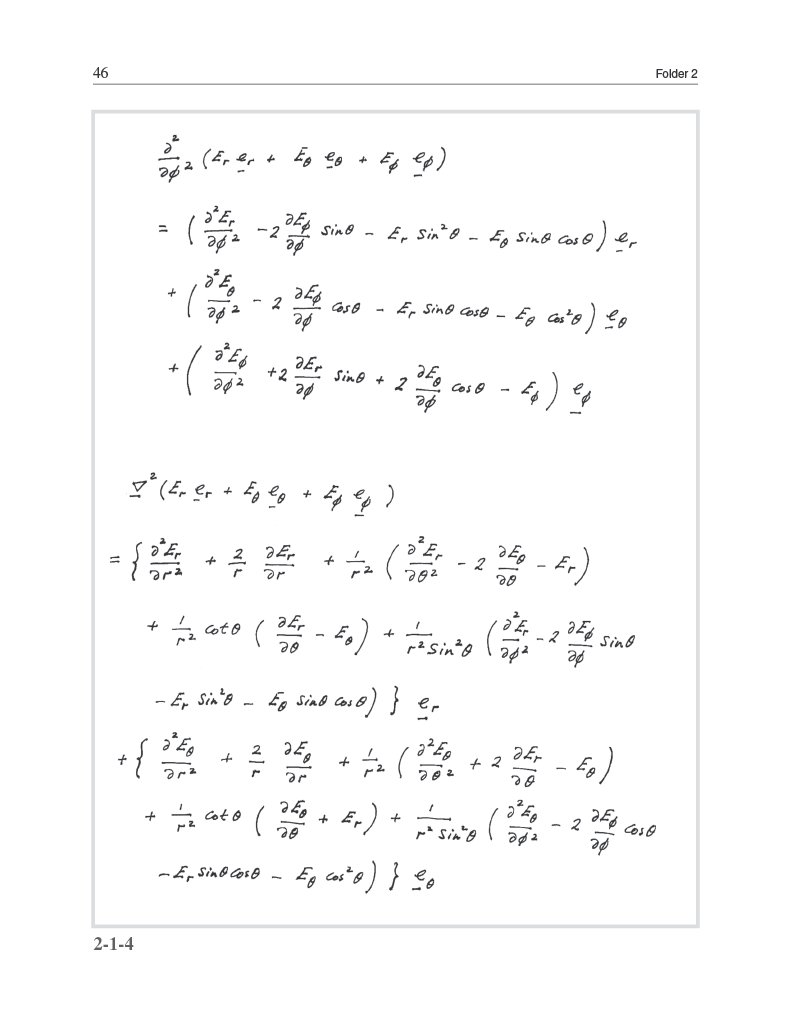 46 Folder 2
∂²/∂φ² (E_r e_r + E_θ e_θ + E_φ e_φ)
= (∂²E_r/∂φ² - 2 ∂E_φ/∂φ sinθ - E_r sin²θ - E_θ sinθ cosθ) e_r
+ (∂²E_θ/∂φ² - 2 ∂E_φ/∂φ cosθ - E_r sinθ cosθ - E_θ cos²θ) e_θ
+ (∂²E_φ/∂φ² + 2 ∂E_r/∂φ sinθ + 2 ∂E_θ/∂φ cosθ - E_φ) e_φ
∇² (E_r e_r + E_θ e_θ + E_φ e_φ)
= { ∂²E_r/∂r² + 2/r ∂E_r/∂r + 1/r² (∂²E_r/∂θ² - 2 ∂E_θ/∂θ - E_r)
+ 1/r² cotθ (∂E_r/∂θ - E_θ) + 1/r² sin²θ (∂²E_r/∂φ² - 2 ∂E_φ/∂φ sinθ
- E_r sin²θ - E_θ sinθ cosθ) } e_r
+ { ∂²E_θ/∂r² + 2/r ∂E_θ/∂r + 1/r² (∂²E_θ/∂θ² + 2 ∂E_r/∂θ - E_θ)
+ 1/r² cotθ (∂E_θ/∂θ + E_r) + 1/r² sin²θ (∂²E_θ/∂φ² - 2 ∂E_φ/∂φ cosθ
- E_r sinθ cosθ - E_θ cos²θ) } e_θ
2-1-4